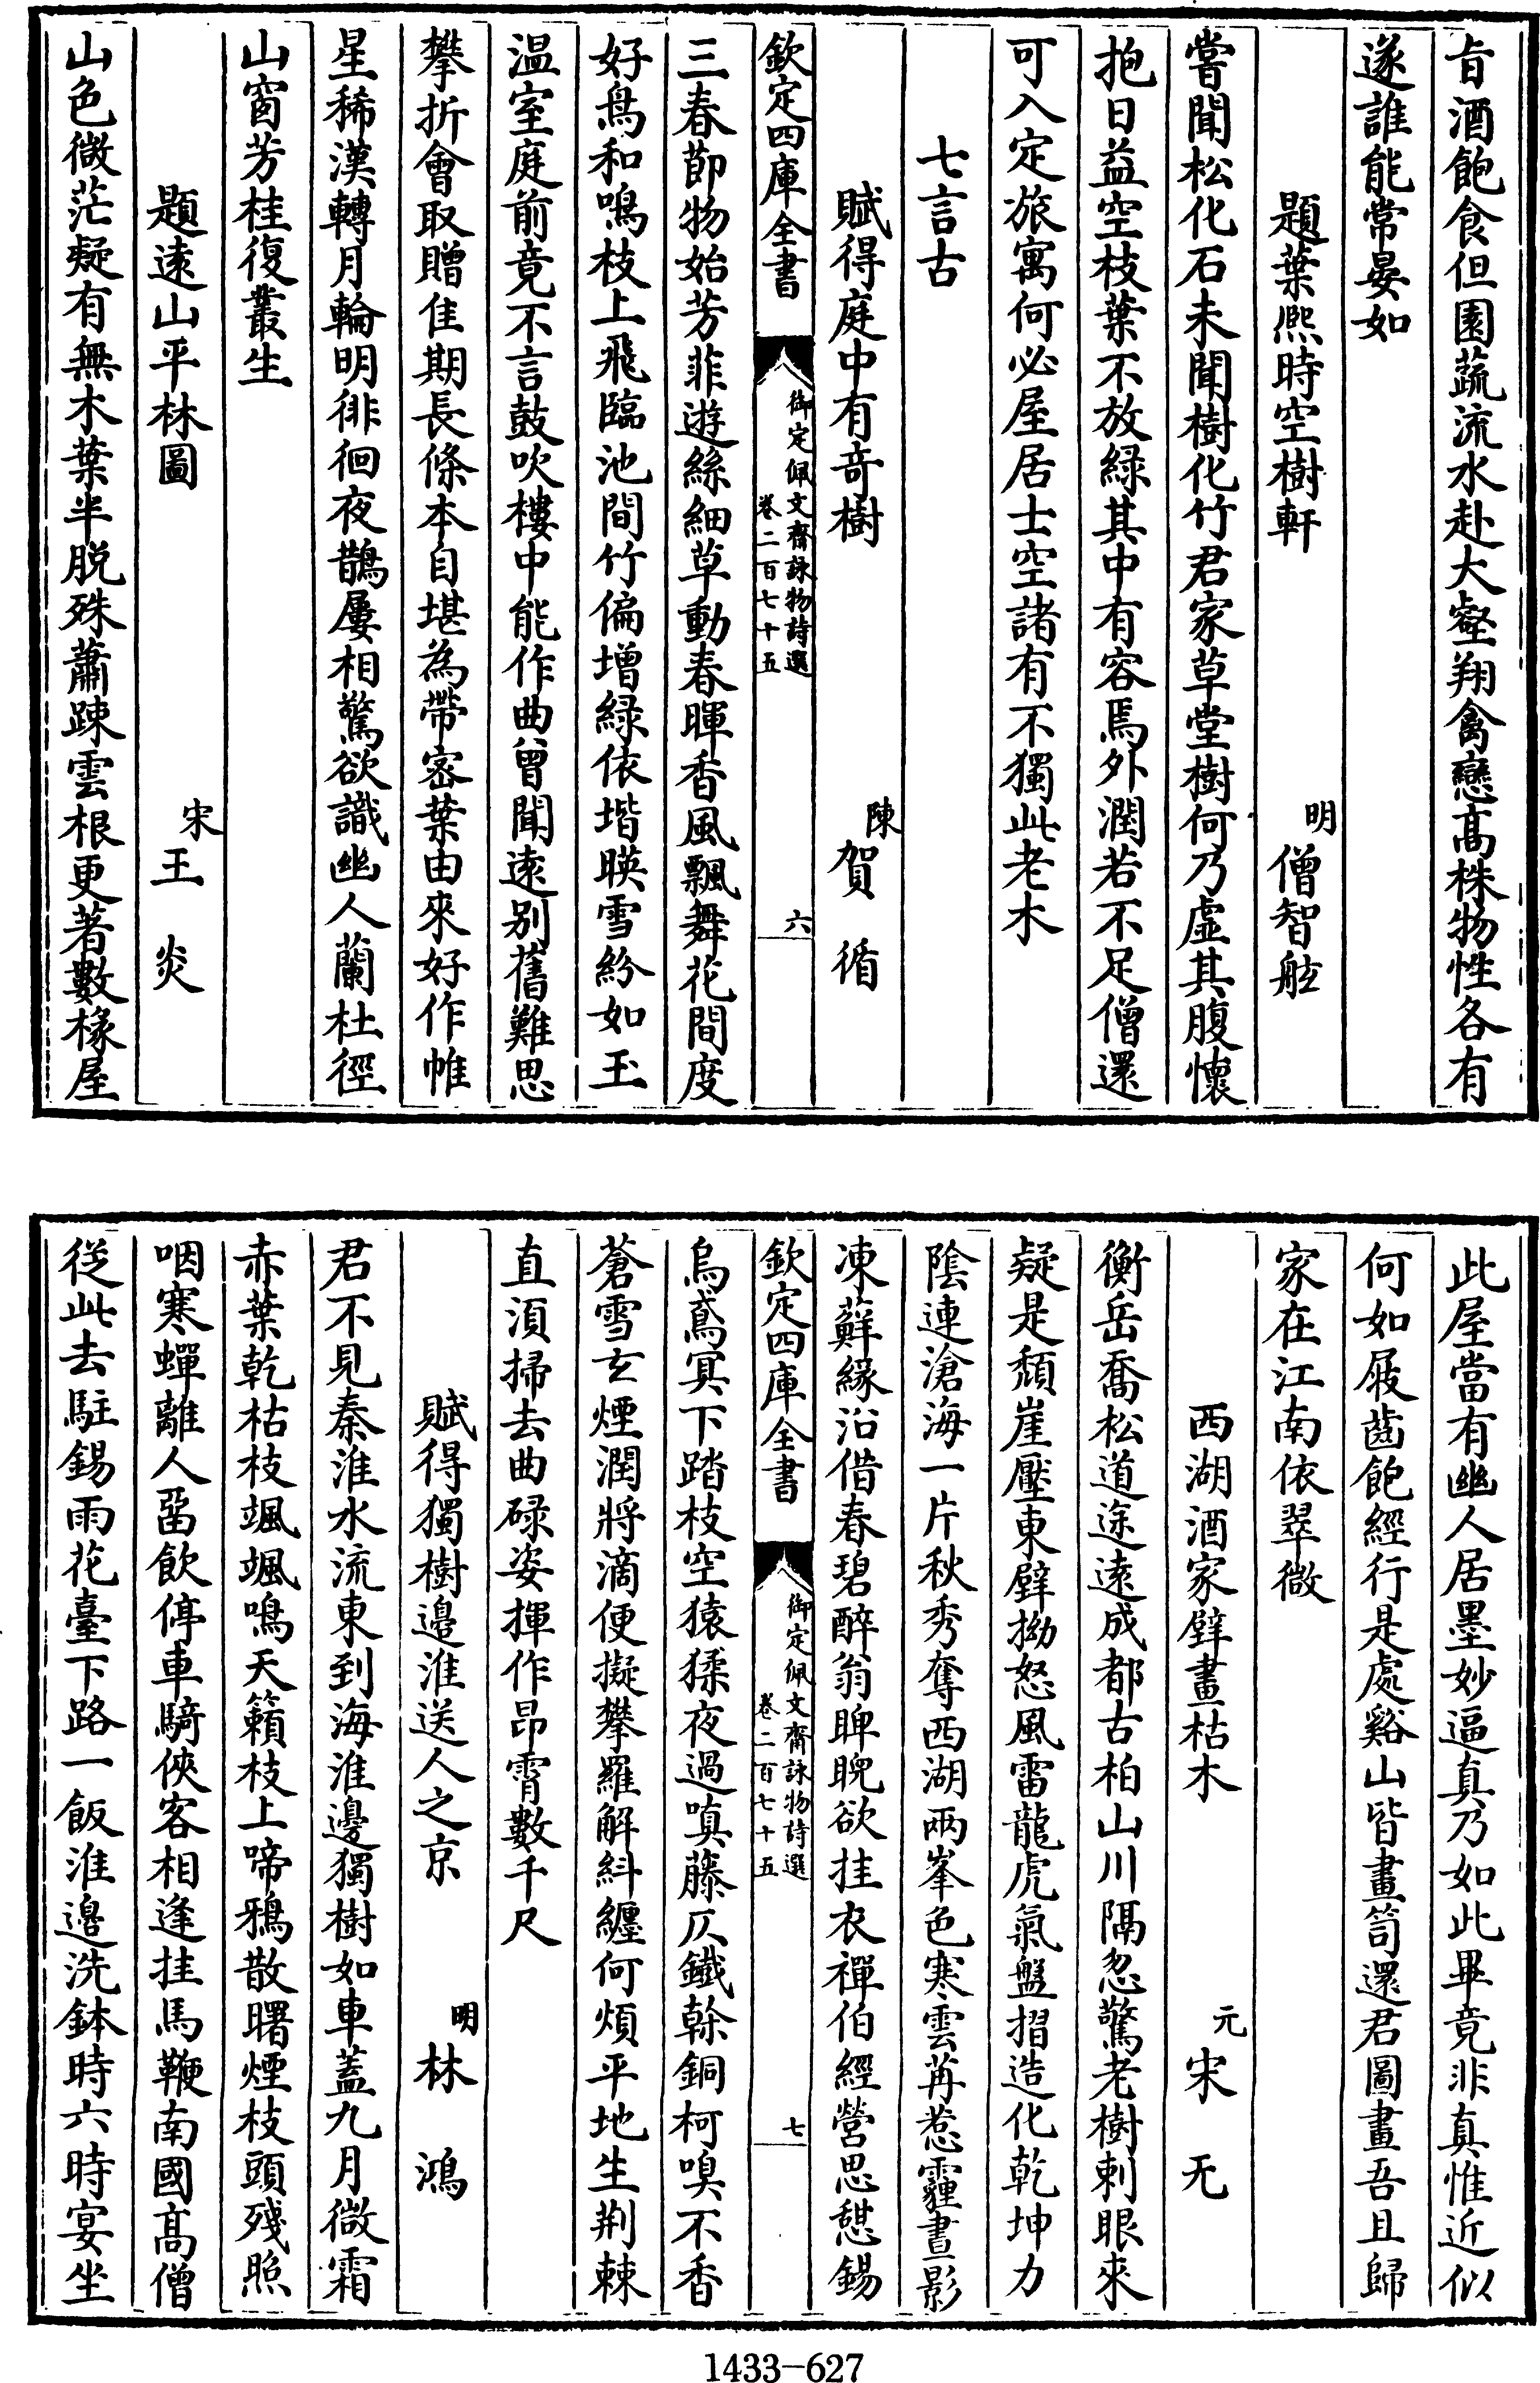 旨酒飽食但園蔬流水赴大壑翔禽戀髙株物性各有
遂誰能常晏如
題葉熙時空樹軒
明
僧智舷
嘗聞松化石未聞樹化竹君家草堂樹何乃虚其腹懷
抱日益空枝葉不放緑其中有容焉外潤若不足僧還
可入定旅寓何必屋居士空諸有不獨此老木
七言古
賦得庭中有奇樹
陳
賀循
欽定四庫全書
御定佩文齋詠物詩選
卷二百七十五
六
三春節物始芳菲遊絲細草動春暉香風飄舞花間度
好鳥和鳴枝上飛臨池間竹偏增緑依堦暎雪紛如玉
温室庭前竟不言鼓吹樓中能作曲曾聞遠别舊難思
攀折會取贈佳期長條本自堪為帶宻葉由來好作帷
星稀漢轉月輪明徘徊夜鵲屢相驚欲識幽人蘭杜徑
山窗芳桂復叢生
題遠山平林圖
宋
王炎
山色微茫疑有無木葉半脱殊蕭踈雲根更著數椽屋
此屋當有幽人居墨妙逼真乃如此畢竟非真惟近似
何如屐齒飽經行是處谿山皆畫笥還君圖畫吾且歸
家在江南依翠微
西湖酒家壁畫枯木
元
宋无
衡岳喬松道途遠成都古柏山川隔忽驚老樹刺眼來
疑是頹崖壓東壁拗怒風雷龍虎氣盤摺造化乾坤力
陰連滄海一片秋秀奪西湖兩峯色寒雲苒惹霾晝影
凍蘚緣沿借春碧醉翁睥睨欲挂衣禪伯經營思憇錫
欽定四庫全書
御定佩文齋詠物詩選
卷二百七十五
七
烏鳶冥下踏枝空猿猱夜過嗔藤仄鐵榦銅柯嗅不香
蒼雪玄煙潤將滴便擬攀羅解糾纏何煩平地生荆棘
直須掃去曲碌姿揮作昂霄數千尺
賦得獨樹邊淮送人之京
明
林鴻
君不見秦淮水流東到海淮邊獨樹如車蓋九月微霜
赤葉乾枯枝颯颯鳴天籟枝上啼鴉散曙煙枝頭殘照
咽寒蟬離人畱飲停車騎俠客相逢挂馬鞭南國髙僧
從此去駐錫雨花臺下路一飯淮邊洗鉢時六時宴坐
1433-627